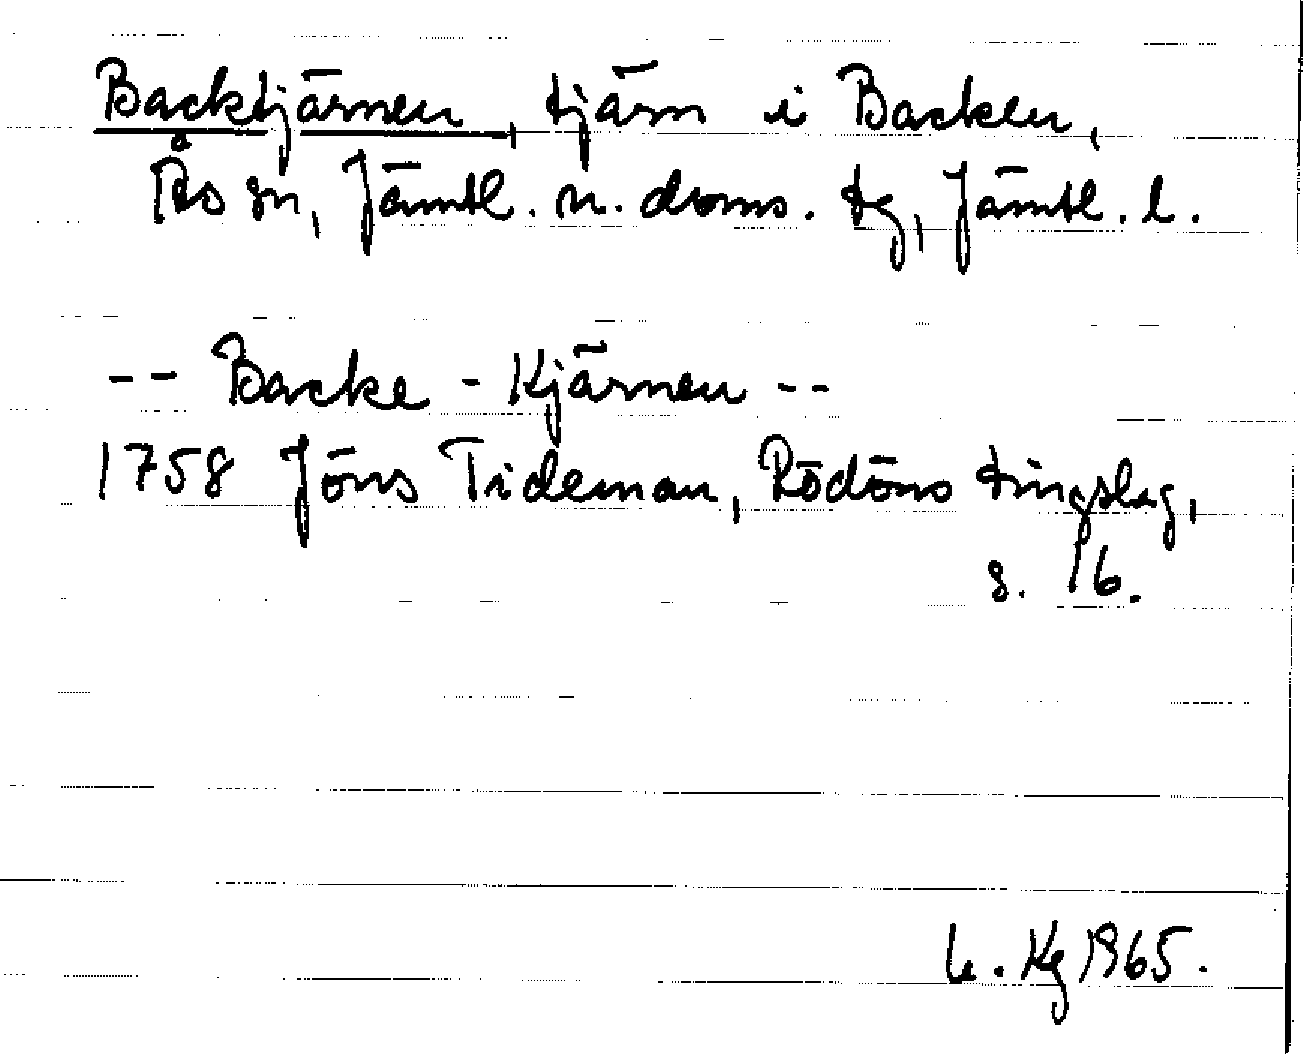 Backtjärnen, tjärn i Backen,
Ås sn, Jämtl. n. doms. tg, Jämtl. l.
-- Backe-Kjärnen --
1758 Jöns Tideman, Rödöns tingslag,
s. 16.
Kg 1965.